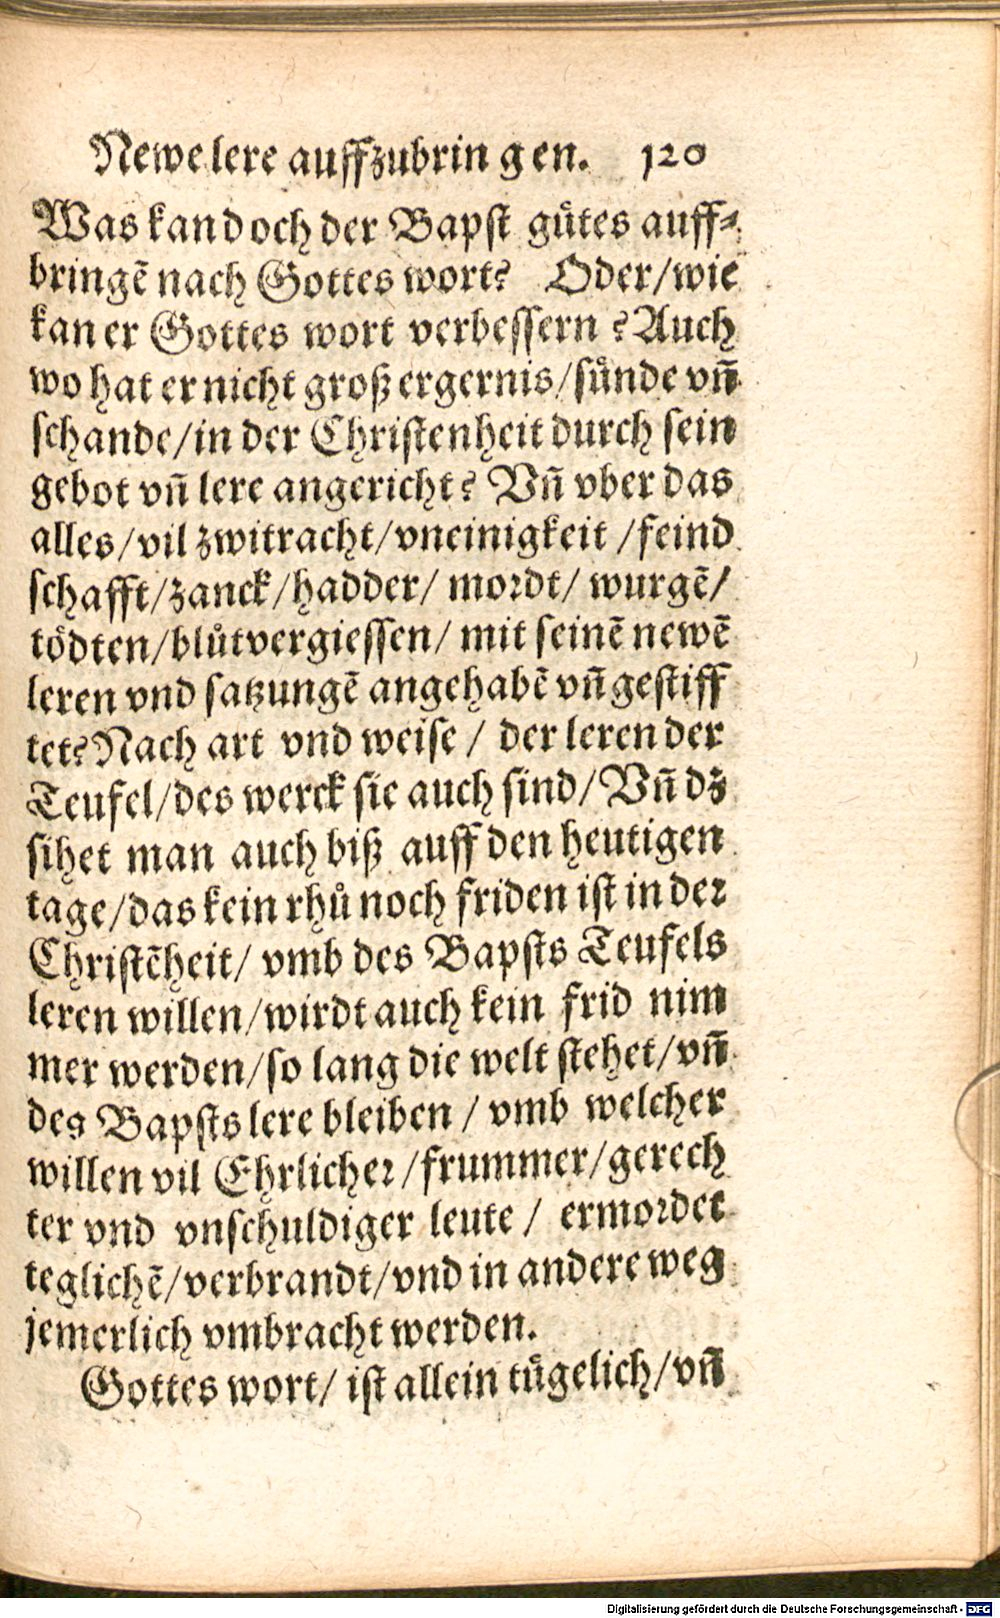 Newe lere auffzubringen. 120
Was kan doch der Bapst gůtes auff⸗
bringē nach Gottes wort? Oder/wie
kan er Gottes wort verbessern? Auch
wo hat er nicht groß ergernis/sünde vñ
schande/in der Christenheit durch sein
gebot vñ lere angericht? Vñ vber das
alles/vil zwitracht/vneinigkeit/feind
schafft/zanck/hadder/mordt/wurgē/
tödten/blůtvergiessen/mit seinē newē
leren vnd satzungē angehabē vñ gestiff
tet? Nach art vnd weise/der leren der
Teufel/des werck sie auch sind/Vñ dz
sihet man auch biß auff den heutigen
tage/das kein rhů noch friden ist in der
Christēheit/vmb des Bapsts Teufels
leren willen/wirdt auch kein frid nim
mer werden/so lang die welt stehet/vñ
des Bapsts lere bleiben/vmb welcher
willen vil Ehrlicher/frummer/gerech
ter vnd vnschuldiger leute/ermordet
teglichē/verbrandt/vnd in andere weg
jemerlich vmbracht werden.
Gottes wort/ist allein tůgelich/vñ
Digitalisierung gefördert durch die Deutsche Forschungsgemeinschaft - DFG